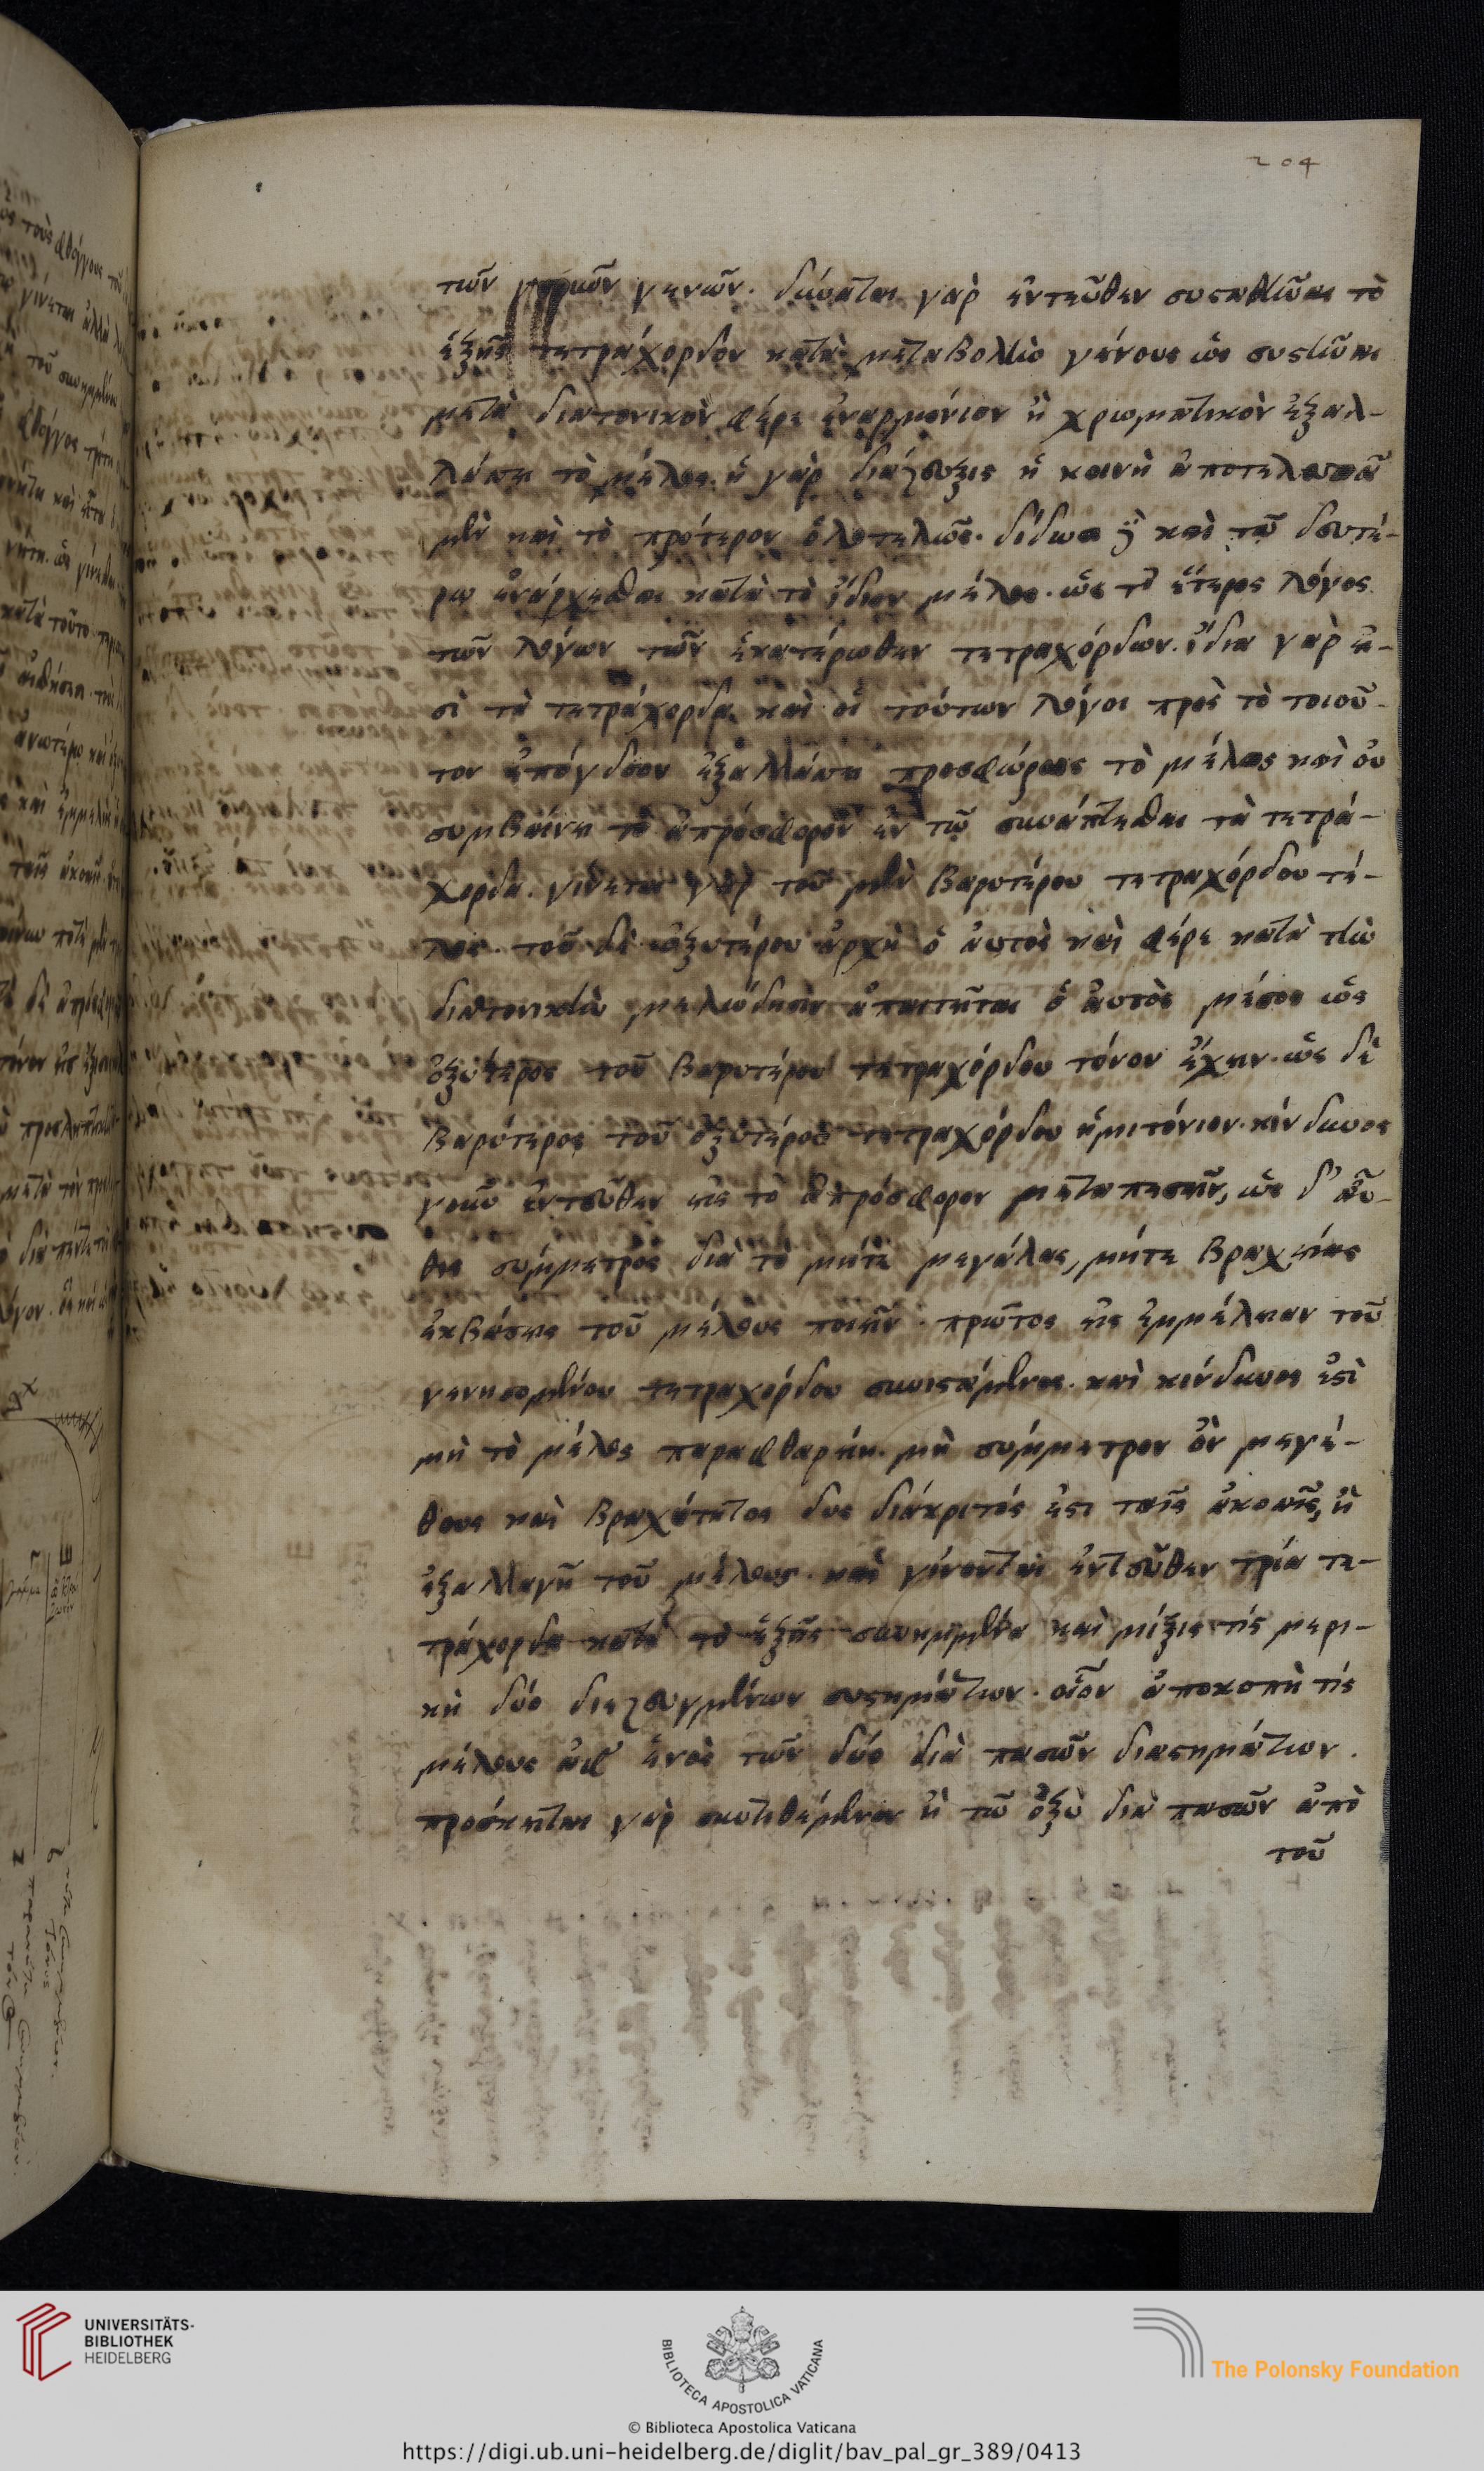 204
τῶν γενῶν. δύναται γὰρ ἐντεῦθεν συσταθῆναι τὸ
ἑξῆς τετράχορδον κατὰ μεταβολὴν γένους ὡς συστῆναι
μετὰ διατονικὸν φέρε ἐναρμόνιον ἢ χρωματικὸν ἐξαλ-
τὸ μέλος. ἡ γὰρ διάζευξις ἡ κοινὴ
μὲν καὶ τὸ πρότερον ὁλοτελῶς. δίδωσι καὶ τῷ δευτέ-
ρω ἐνάρχεσθαι κατὰ τὸ ἴδιον μέλος. ὡς ἕτερος λόγος
τῶν λόγων τῶν ἑκατέρωθεν τετραχόρδων. ἴδια γὰρ εἰ-
σὶ τὰ τετράχορδα καὶ οἱ τούτων λόγοι πρὸς τὸ τοιοῦ-
τον ἐπόγδοον ἐξαλλάττει προσφόρως τὸ μέλος καὶ οὐ
συμβαίνει τὸ ἀπρόσφορον ἐν τῷ συνάπτεσθαι τὰ τετρά-
χορδα. γίνεται γὰρ τοῦ μὲν βαρυτέρου τετραχόρδου τέ-
λος. τοῦ δὲ ὀξυτέρου ἀρχὴ ὁ αὐτὸς καὶ φέρε κατὰ τὴν
διατονικὴν μελώδησιν ἀπαιτεῖται ὁ αὐτὸς μέσος ὡς
ὀξύτερος τοῦ βαρυτέρου τετραχόρδου τόνον ἔχειν. ὡς δὲ
βαρύτερος τοῦ ὀξυτέρου τετραχόρδου ἡμιτόνιον. κίνδυνος
γοῦν ἐντεῦθεν εἰς τὸ ἀπρόσφορον μεταπεσεῖν, ὡς δ' αὖ-
θις σύμμετρος διὰ τὸ μήτε μεγάλας, μήτε βραχείας
ἐκβάσεις τοῦ μέλους ποιεῖν. πρῶτος εἰς ἐμμέλειαν τοῦ
γενησομένου τετραχόρδου συνιστάμενος. καὶ κίνδυνος ἐστὶ
μὴ τὸ μέλος παραφθαρείη. μὴ σύμμετρον ὂν μεγέ-
θους καὶ βραχύτητος δυσδιάκριτός ἐστι ταῖς ἀκοαῖς, ἡ
ἐξαλλαγὴ τοῦ μέλους. καὶ γίνονται ἐντεῦθεν τρία τε-
τράχορδα κατὰ τὸ ἑξῆς συνημμένα καὶ μίξις τίς μερι-
κὴ δύο διεζευγμένων συστημάτων. οἷον ἀποκοπὴ τίς
μέλους ἀφ' ἑνὸς τῶν δύο διὰ πασῶν διαστημάτων.
πρόσκειται γὰρ συντιθέμενον ἢ τῷ ὀξὺ διὰ πασῶν ἀπὸ
τοῦ
UNIVERSITÄTS-
BIBLIOTHEK
HEIDELBERG
BIBLIOTECA APOSTOLICA VATICANA
The Polonsky Foundation
© Biblioteca Apostolica Vaticana
https://digi.ub.uni-heidelberg.de/diglit/bav_pal_gr_389/0413